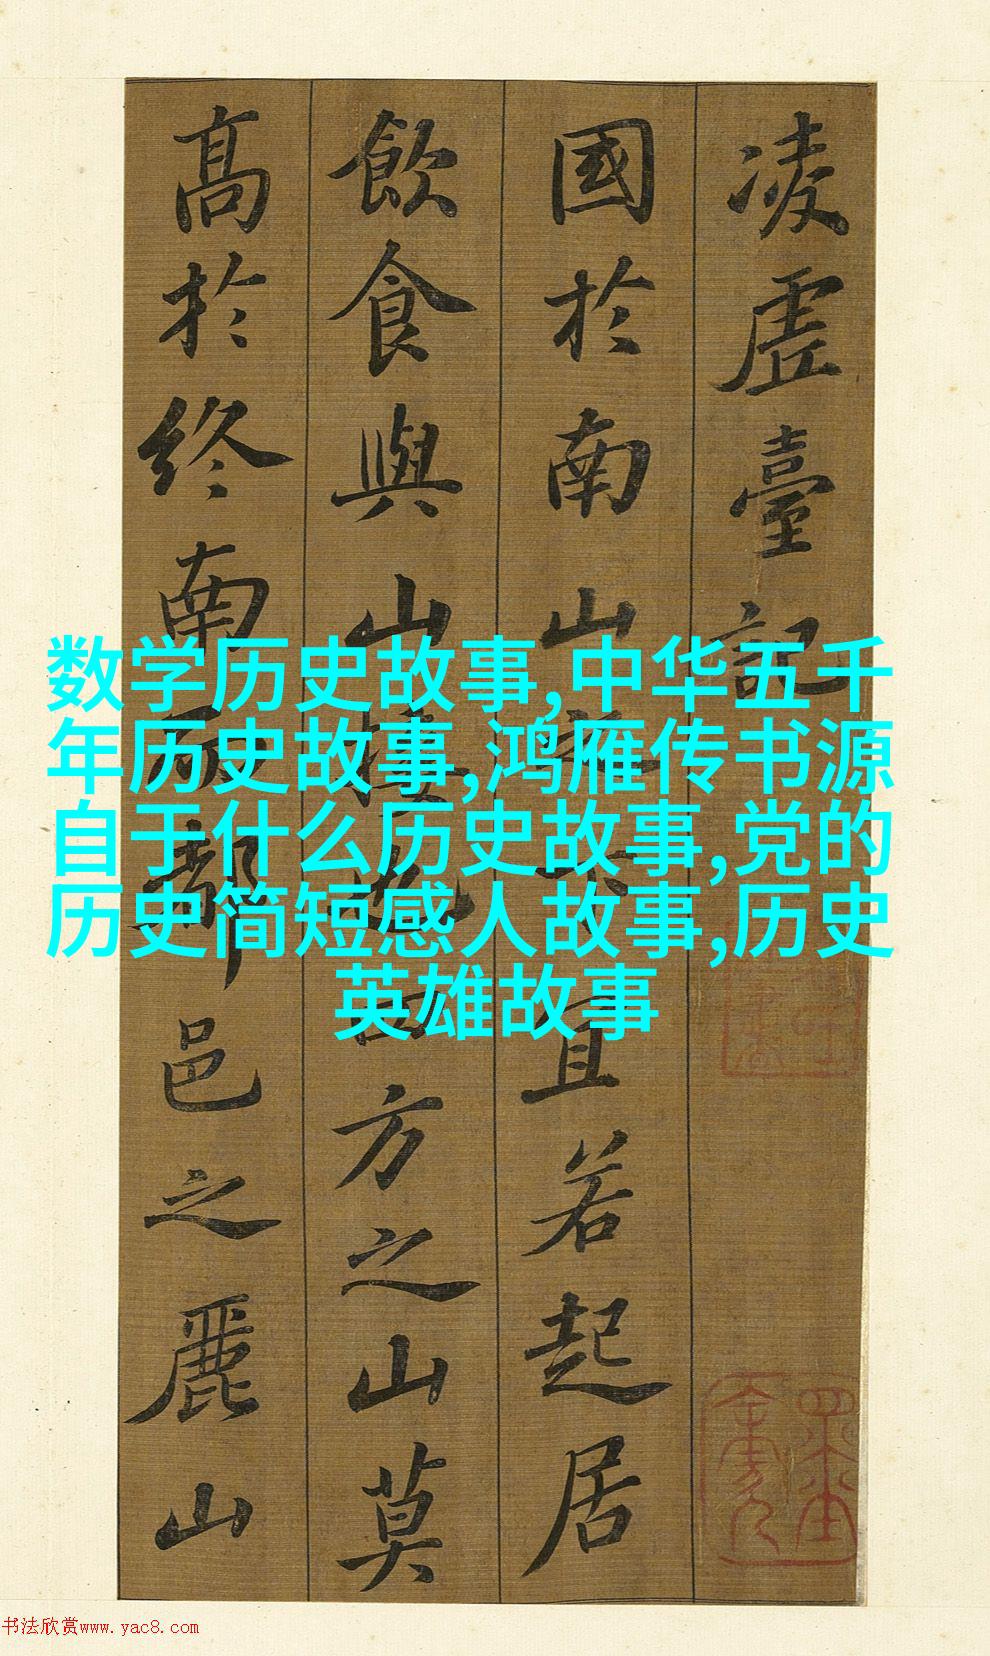 凌虛臺記
國於南山之下宜若起居
飲食與山接也四方之山莫
高於終南而都邑之麗山
数学历史故事,中华五千
年历史故事,鸿雁传书源
自于什么历史故事,党的
历史简短感人故事,历史
英雄故事
书法欣赏www.yac8.com